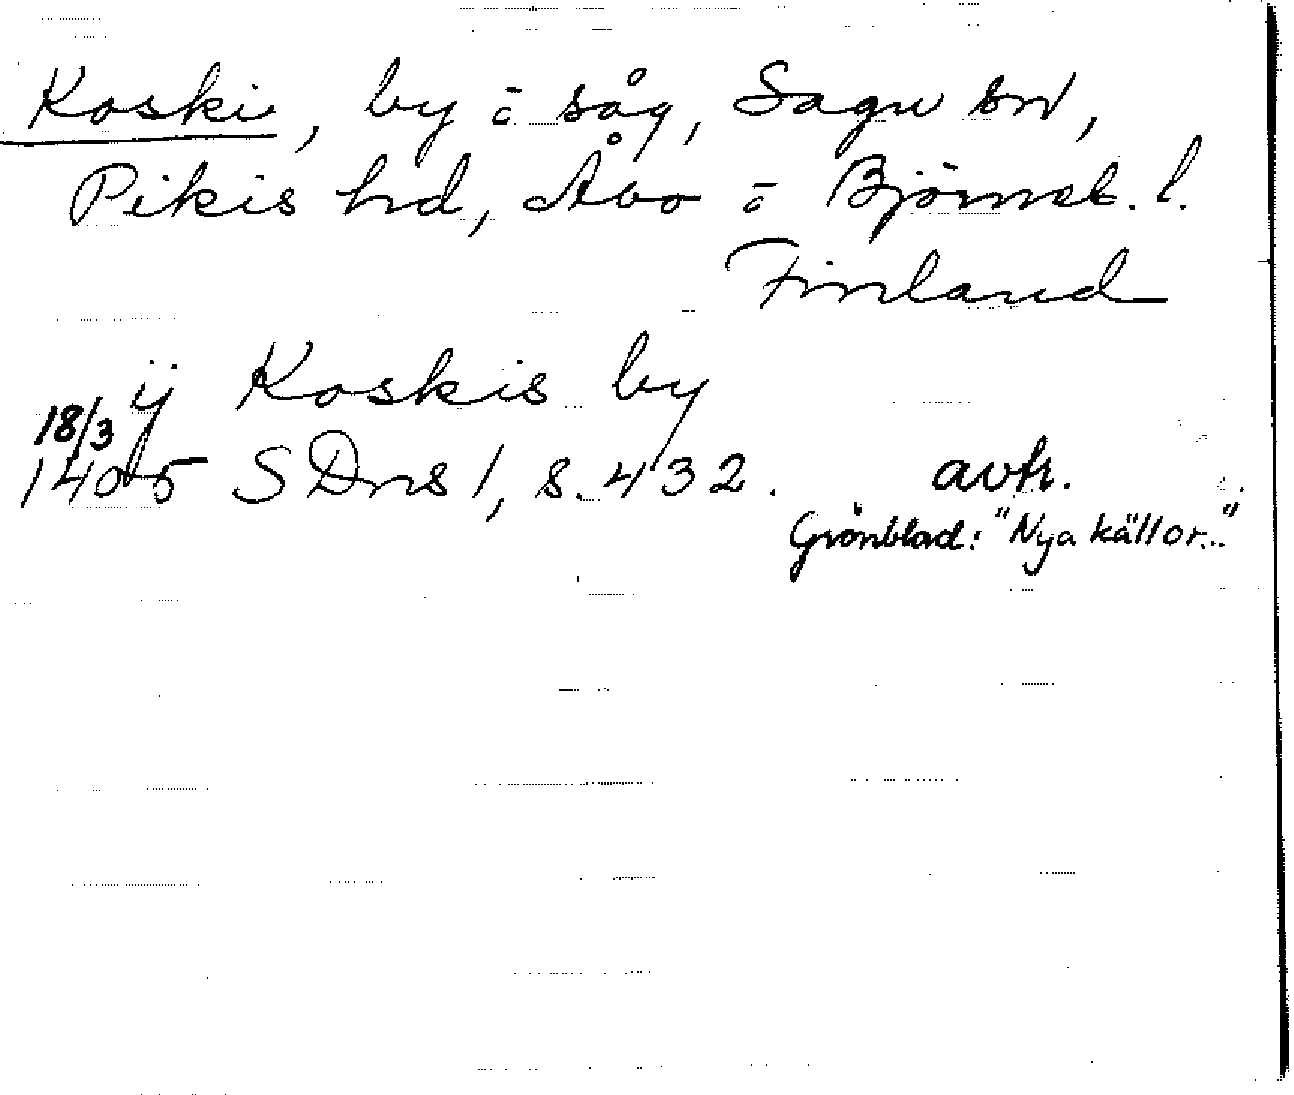 Koski, by o såg, Sagu sn,
Pikis hd, Åbo o Björneb. l.
Finland
ij Koskis by
18/3
1405 SDns 1, s. 432. avtr.
Grönblad: "Nya källor..."